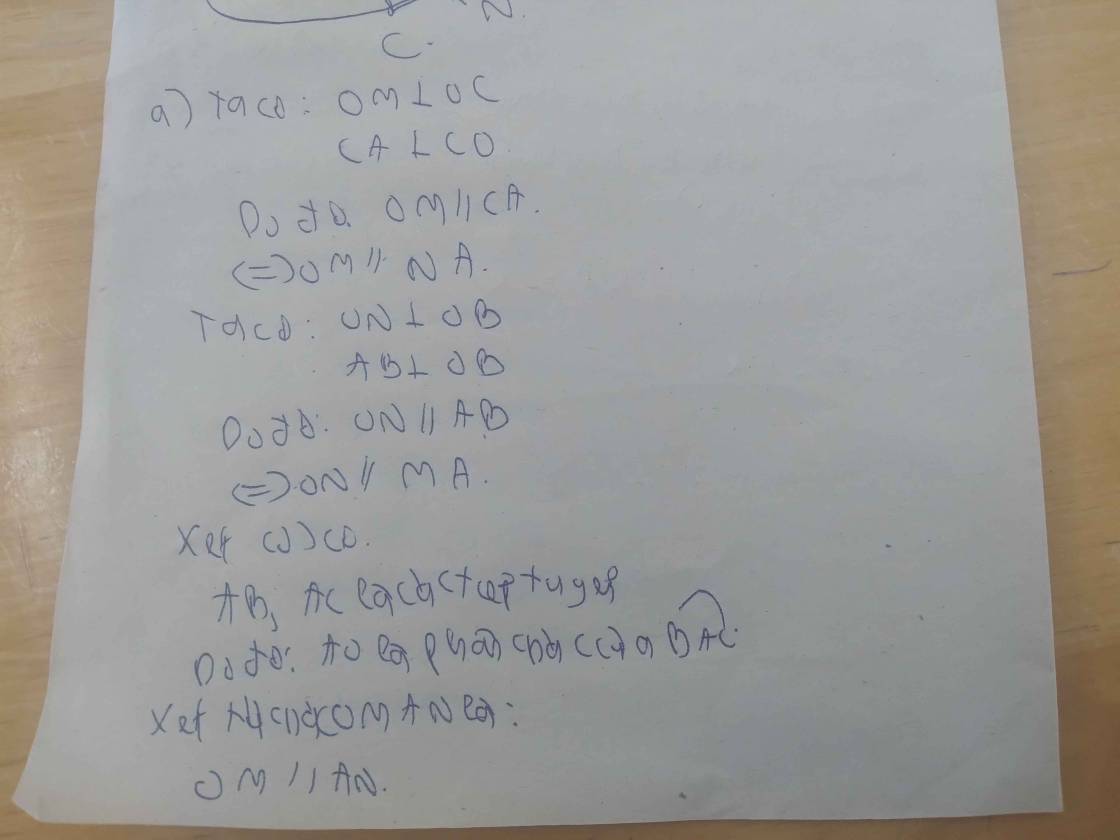 N.
C.
a) Ta có: OM⊥OC
CA⊥CO.
Do đó: OM//CA.
(=) OM// NA.
Ta có: ON⊥OB
AB⊥OB
Do đó: ON//AB
(=) ON// MA.
Xét (O) có.
AB, AC là các tiếp tuyến
Do đó: AO là phân giác của BAC.
Xét tứ giác OMAN là:
OM//AN.